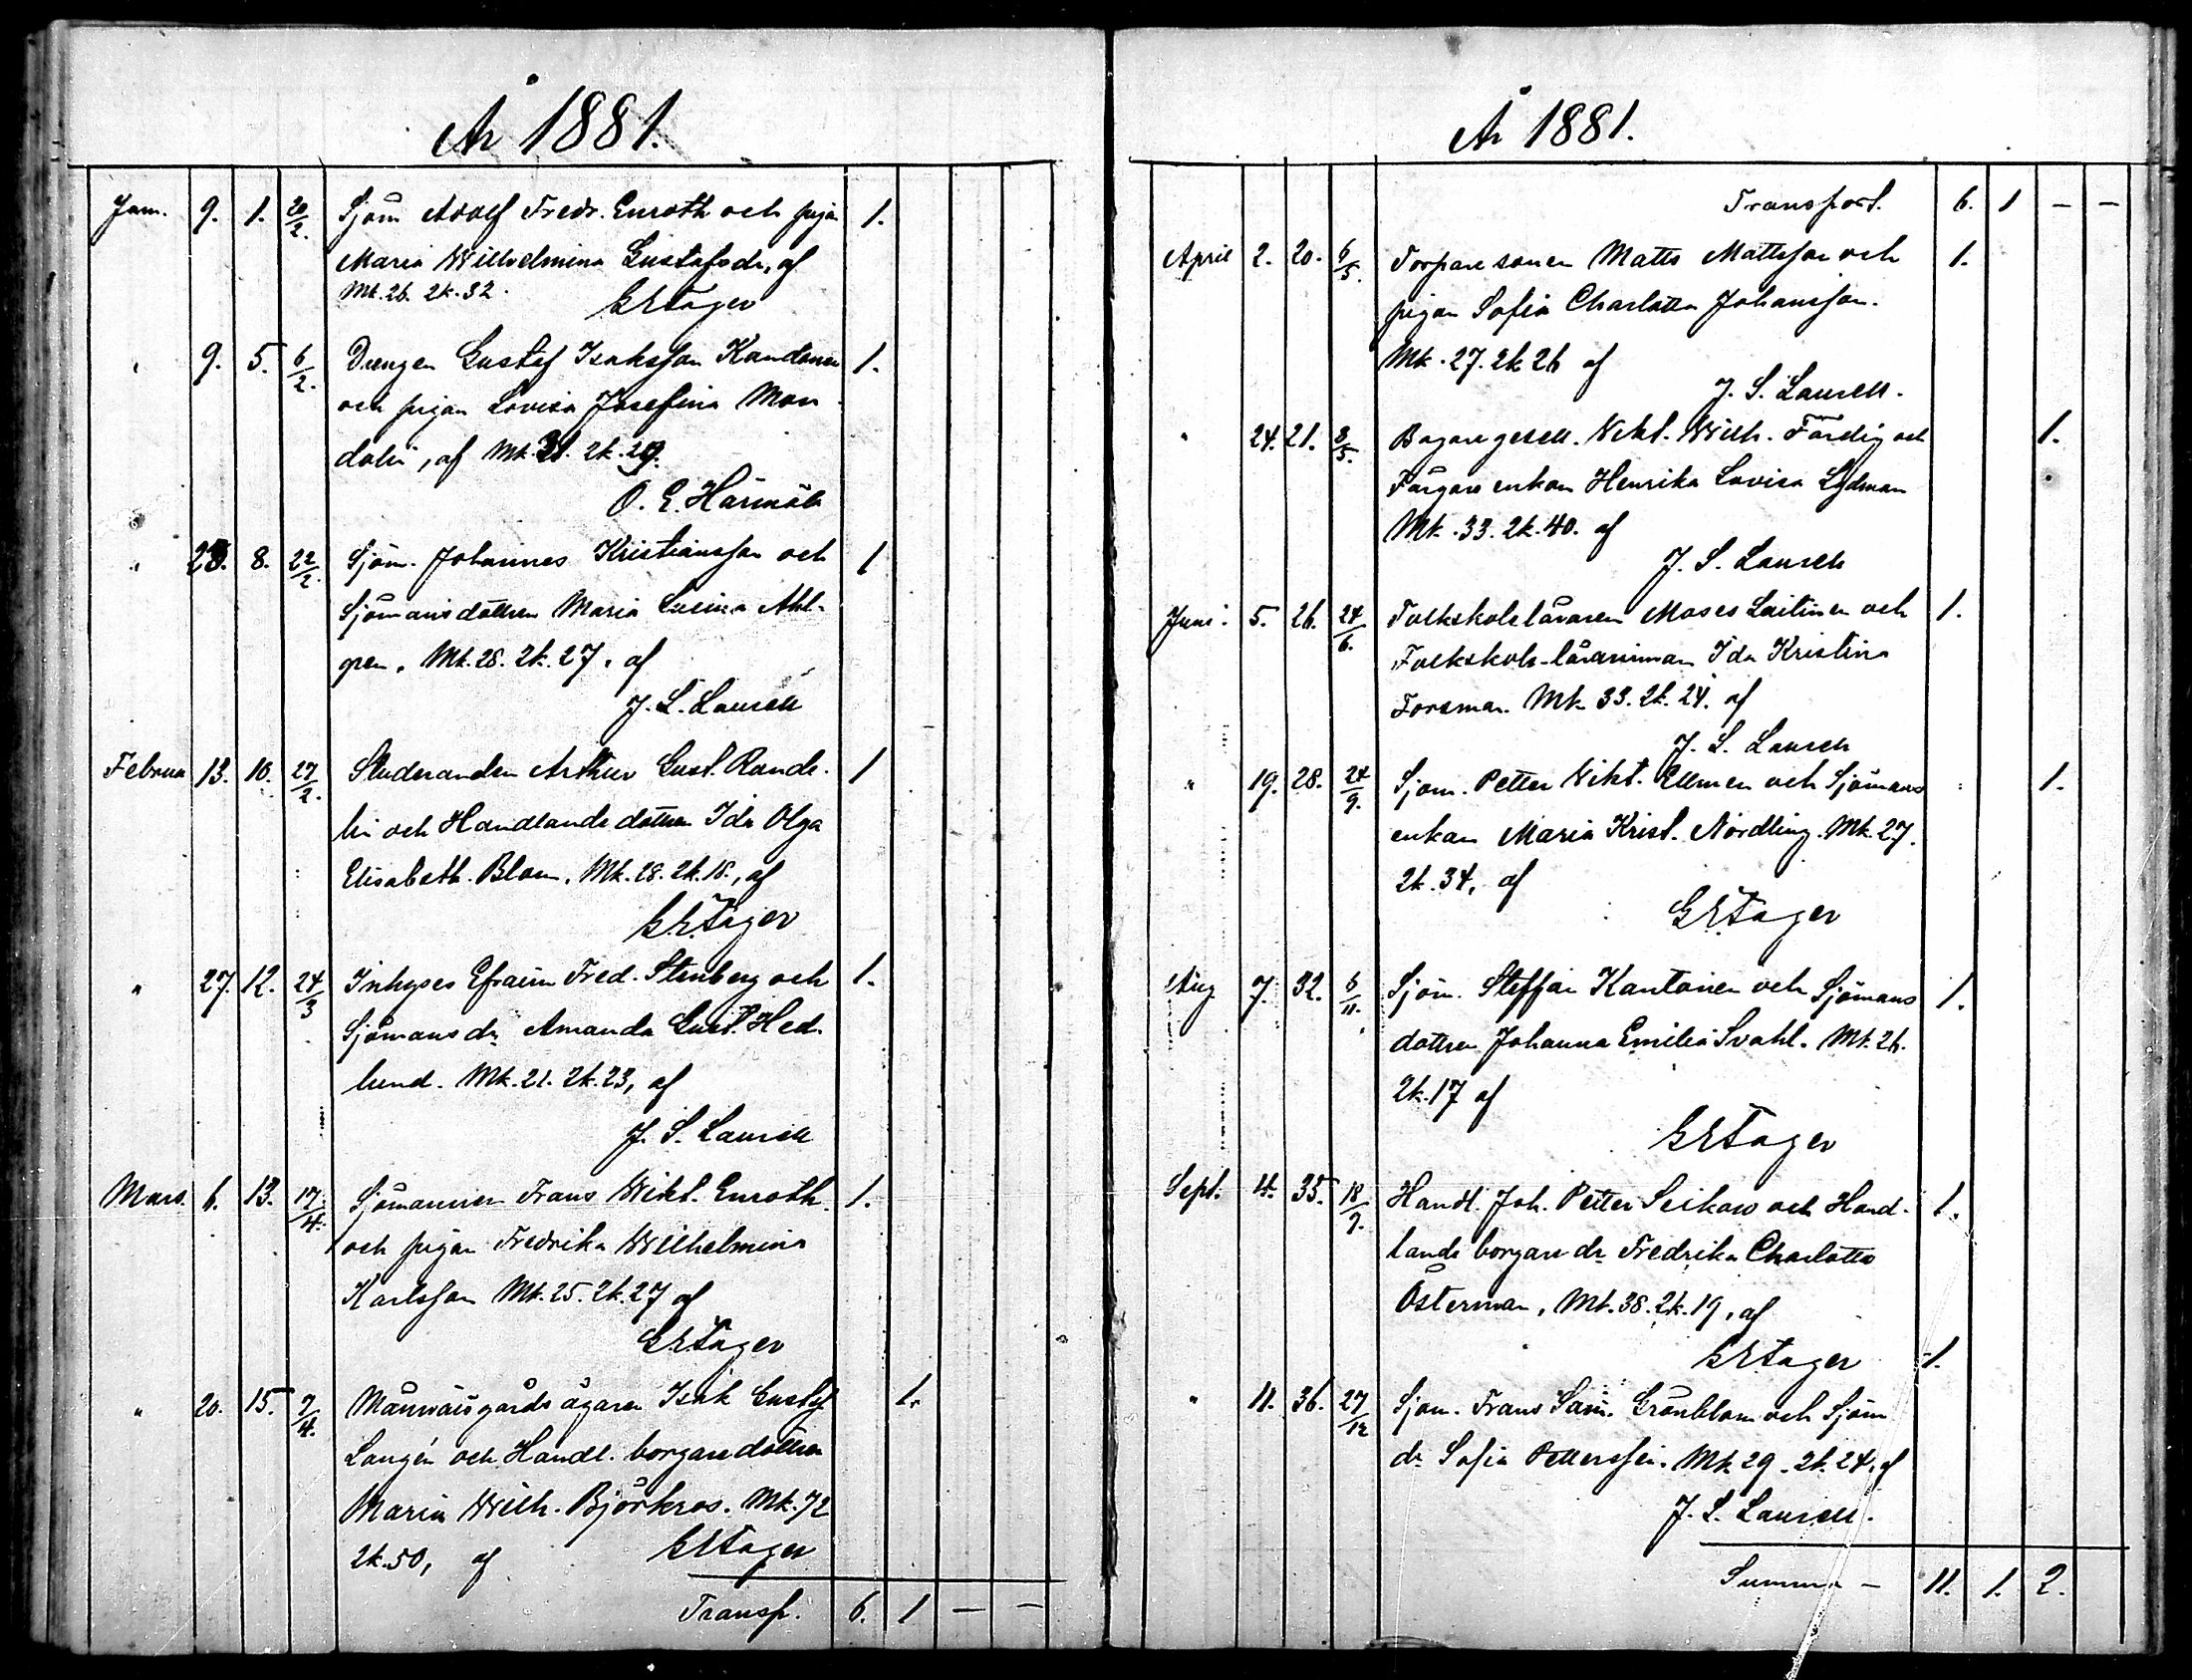 År 1881.
Jan. 9. 1. 20/2. Sjöm Adolf Fredr. Enroth och pigan 1.
Maria Wilhelmina Gustafsdr, af
Mk. 26. 2k. 32.
GETager
" 9. 5. 6/2. Drengen Gustaf Isaksson Kandonen 1.
och pigan Lovisa Josefina Man-
dolin, af Mk. 31. 2k. 29.
O. E. Härmälä
" 23. 8. 22/2. Sjöm. Johannes Kristiansson och 1
Sjömansdottren Maria Lusina Ahl-
gren. Mk. 28. 2k. 27. af
J. S. Laurell
Februa 13. 10. 27/2. Studeranden Arthur Gust. Rande- 1
lin och Handlandsdottren Ida Olga
Elisabeth Blom. Mk. 28. 2k. 18., af
GETager
" 27. 12. 24/3 Inhyses Efraim Fred. Stenberg och 1.
Sjömans dr Amanda Gust. Hed-
lund. Mk. 21. 2k. 23, af
J. S. Laurell
Mars. 6. 13. 17/4. Sjömannen Frans Wikt. Enroth. 1.
och pigan Fredrika Wilhelmina
Karlsson Mk. 25. 2k. 27 af
GETager
" 20. 15. 7/4. gårds ägaren Isak Gustaf 1.
Langén och Handl. borgaredottren
Maria Wilh. Björkros. Mk. 72
2k. 50, af GETager
Transp. 6. 1 — —
År 1881.
Transport. 6. 1 — —
April 2. 20. 6/5. Torpare sonen Matts Mattsson och 1.
pigan Sofia Charlotta Johansson.
Mk. 27. 2k 26 af
J. S. Laurell.
" 24. 21. 8/5. Bagaregesell. Vikt. Wilh. Färdig och 1.
Färgare enkan Henrika Lovisa Lydman
Mk. 33. 2k. 40. af
J. S. Laurell
Juni. 5. 26. 24/6. Folkskoleläraren Moses Laitinen och 1.
Folkskole-lärarinnan Ida Kristina
Forsman. Mk. 33. 2k. 24. af
J. S. Laurell
" 19. 28. 24/9. Sjöm. Petter Vikt. Ellmen och Sjömans 1.
enkan Maria Krist. Nordling. Mk. 27.
2k. 34, af
GETager
Aug 7. 32. 6/11. Sjöm. Steffan Kantonen och Sjömans 1.
dottren Johanna Emilia Svahl. Mk. 26.
2k. 17 af
GETager
Sept. 4. 35. 18/9. Handl. Joh. Petter Seikow och Hand- 1.
lands borgare dr Fredrika Charlotta
Österman, Mk. 38. 2k. 19, af
GETager 1.
" 11. 36. 27/12 Sjöm. Frans Sam. Grönblom och Sjöm
dr Sofia Pettersson. Mk. 29. 2k. 24. af
J. S. Laurell.
Summa — 11. 1. 2.